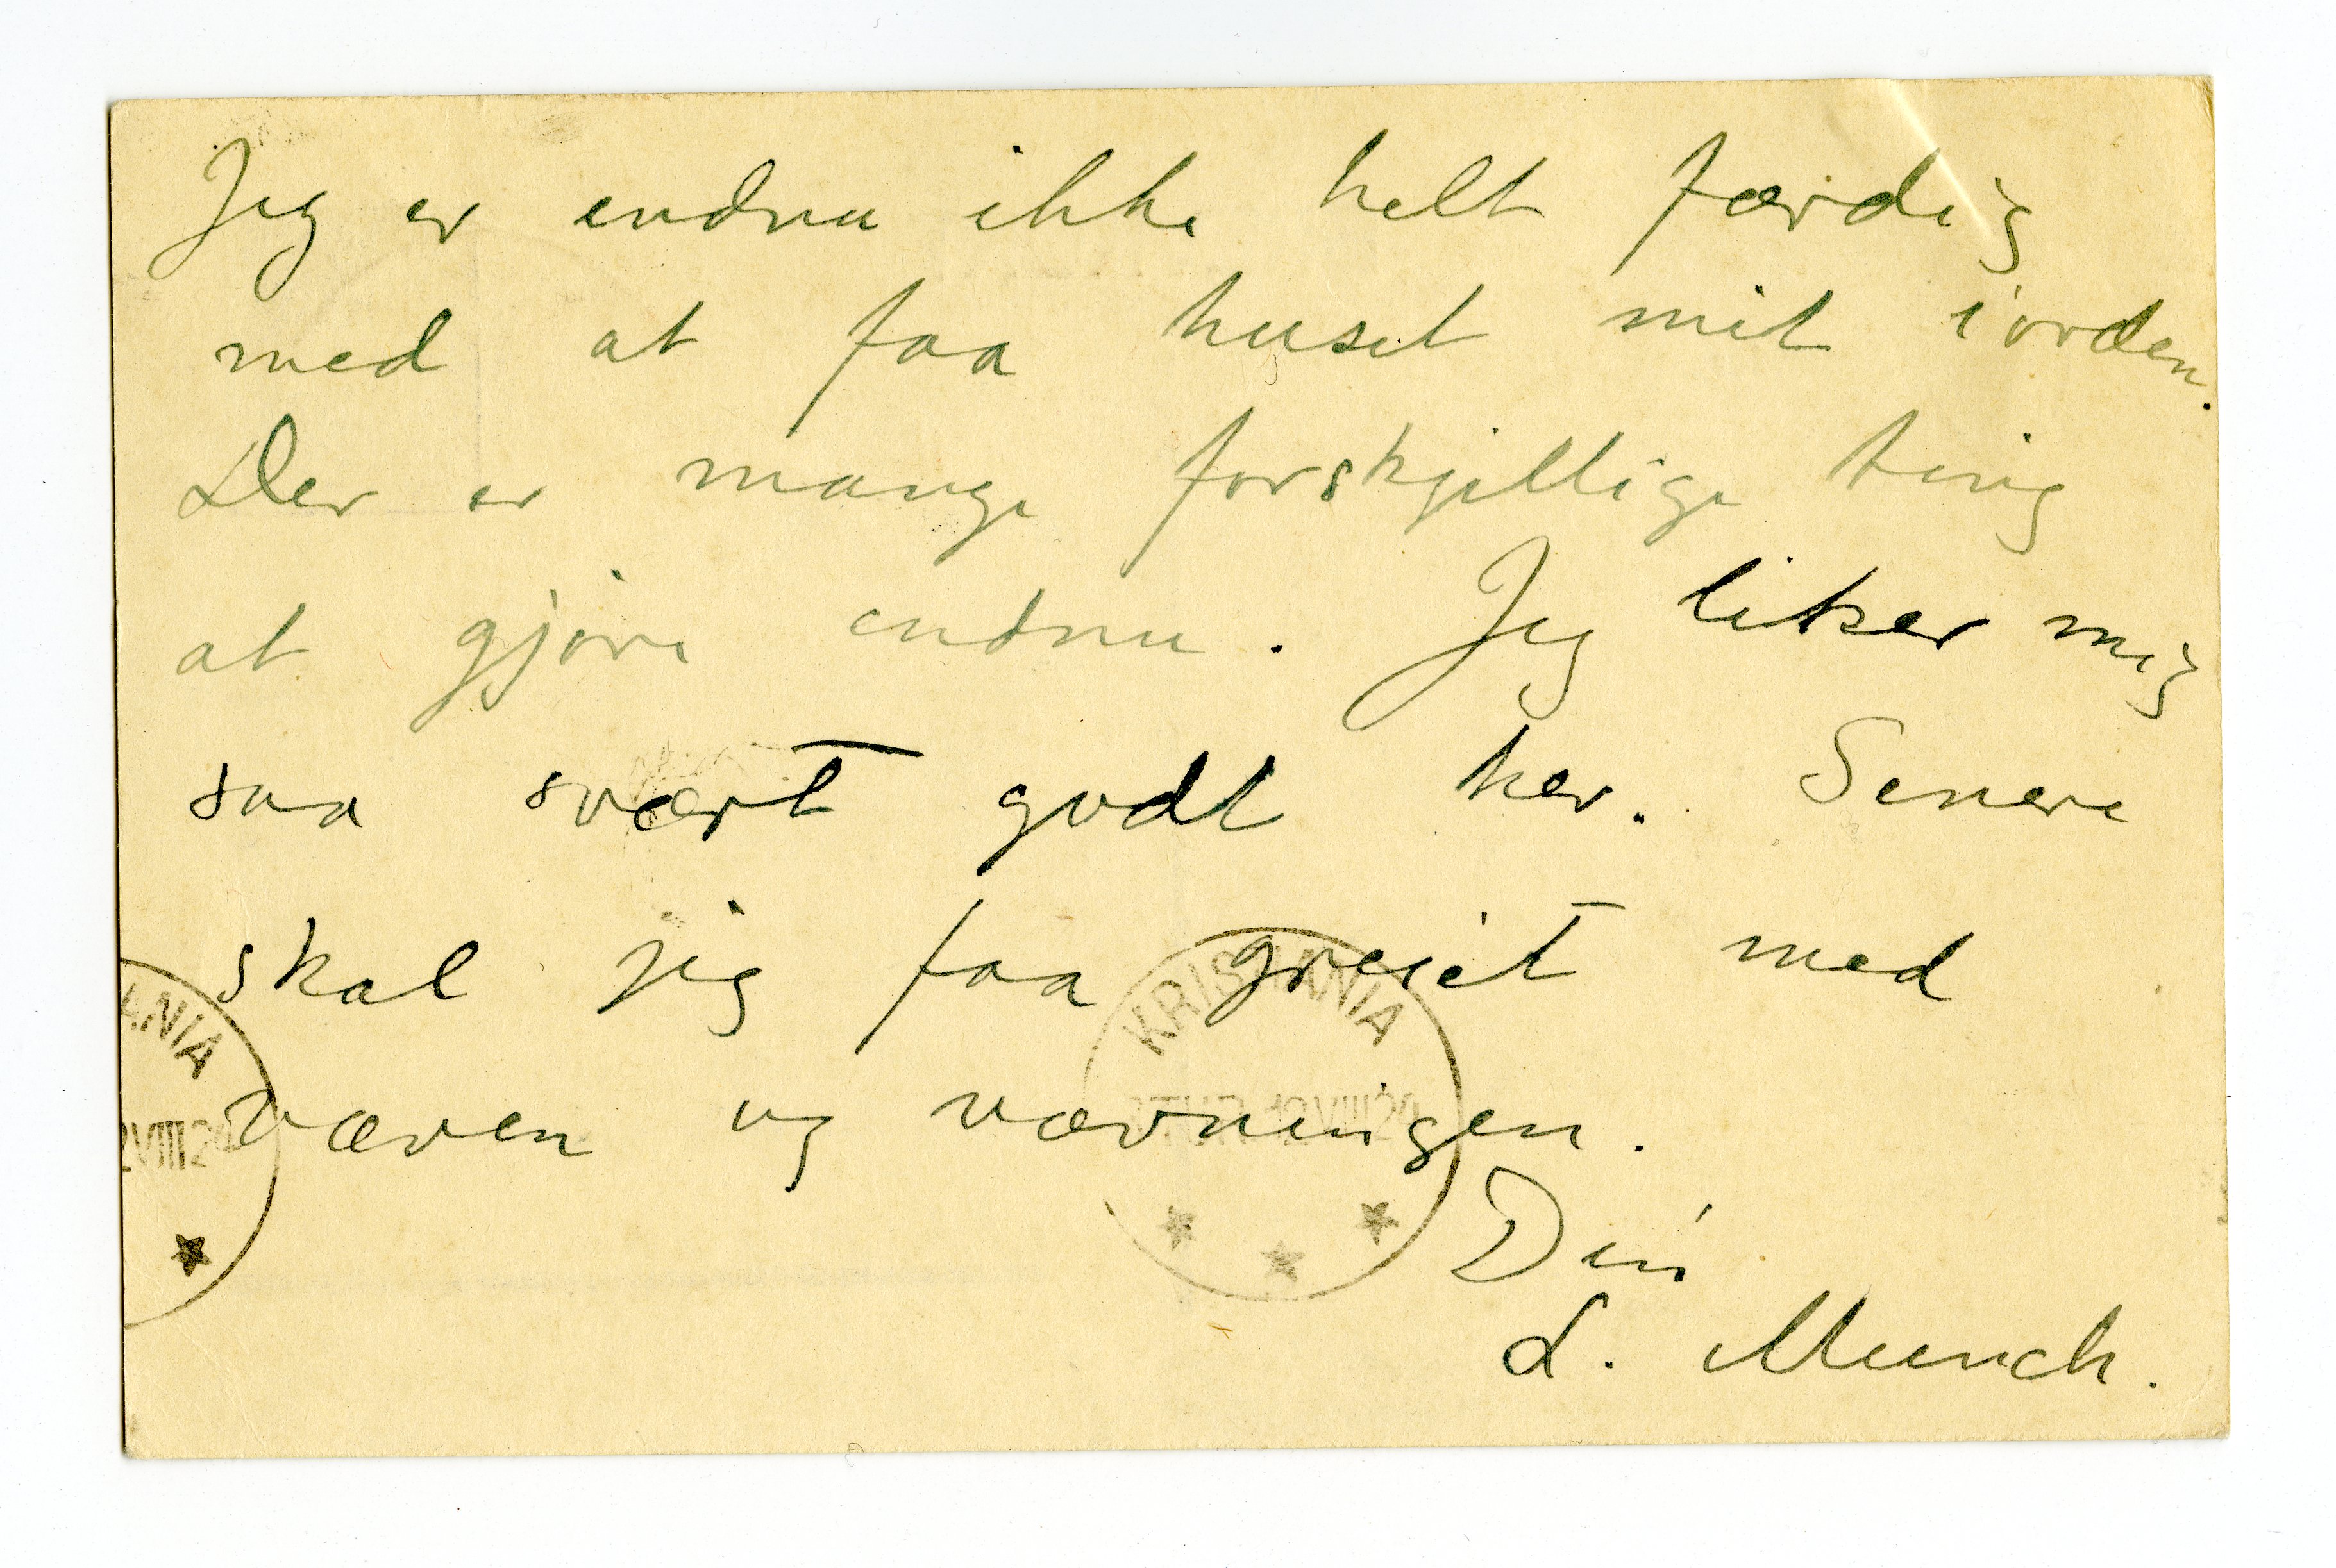 Jeg er endnu ikke helt færdig
med at faa huset mit iorden.
Der er mange forskjellige ting
at gjøre endnu. Jeg liker mig
saa svært godt her. Senere
skal jeg faa greiet med
væven og vævningen.
Din
L. Munch.
KRISTIANIA
12 VIII 24
ANIA
2 VIII 24